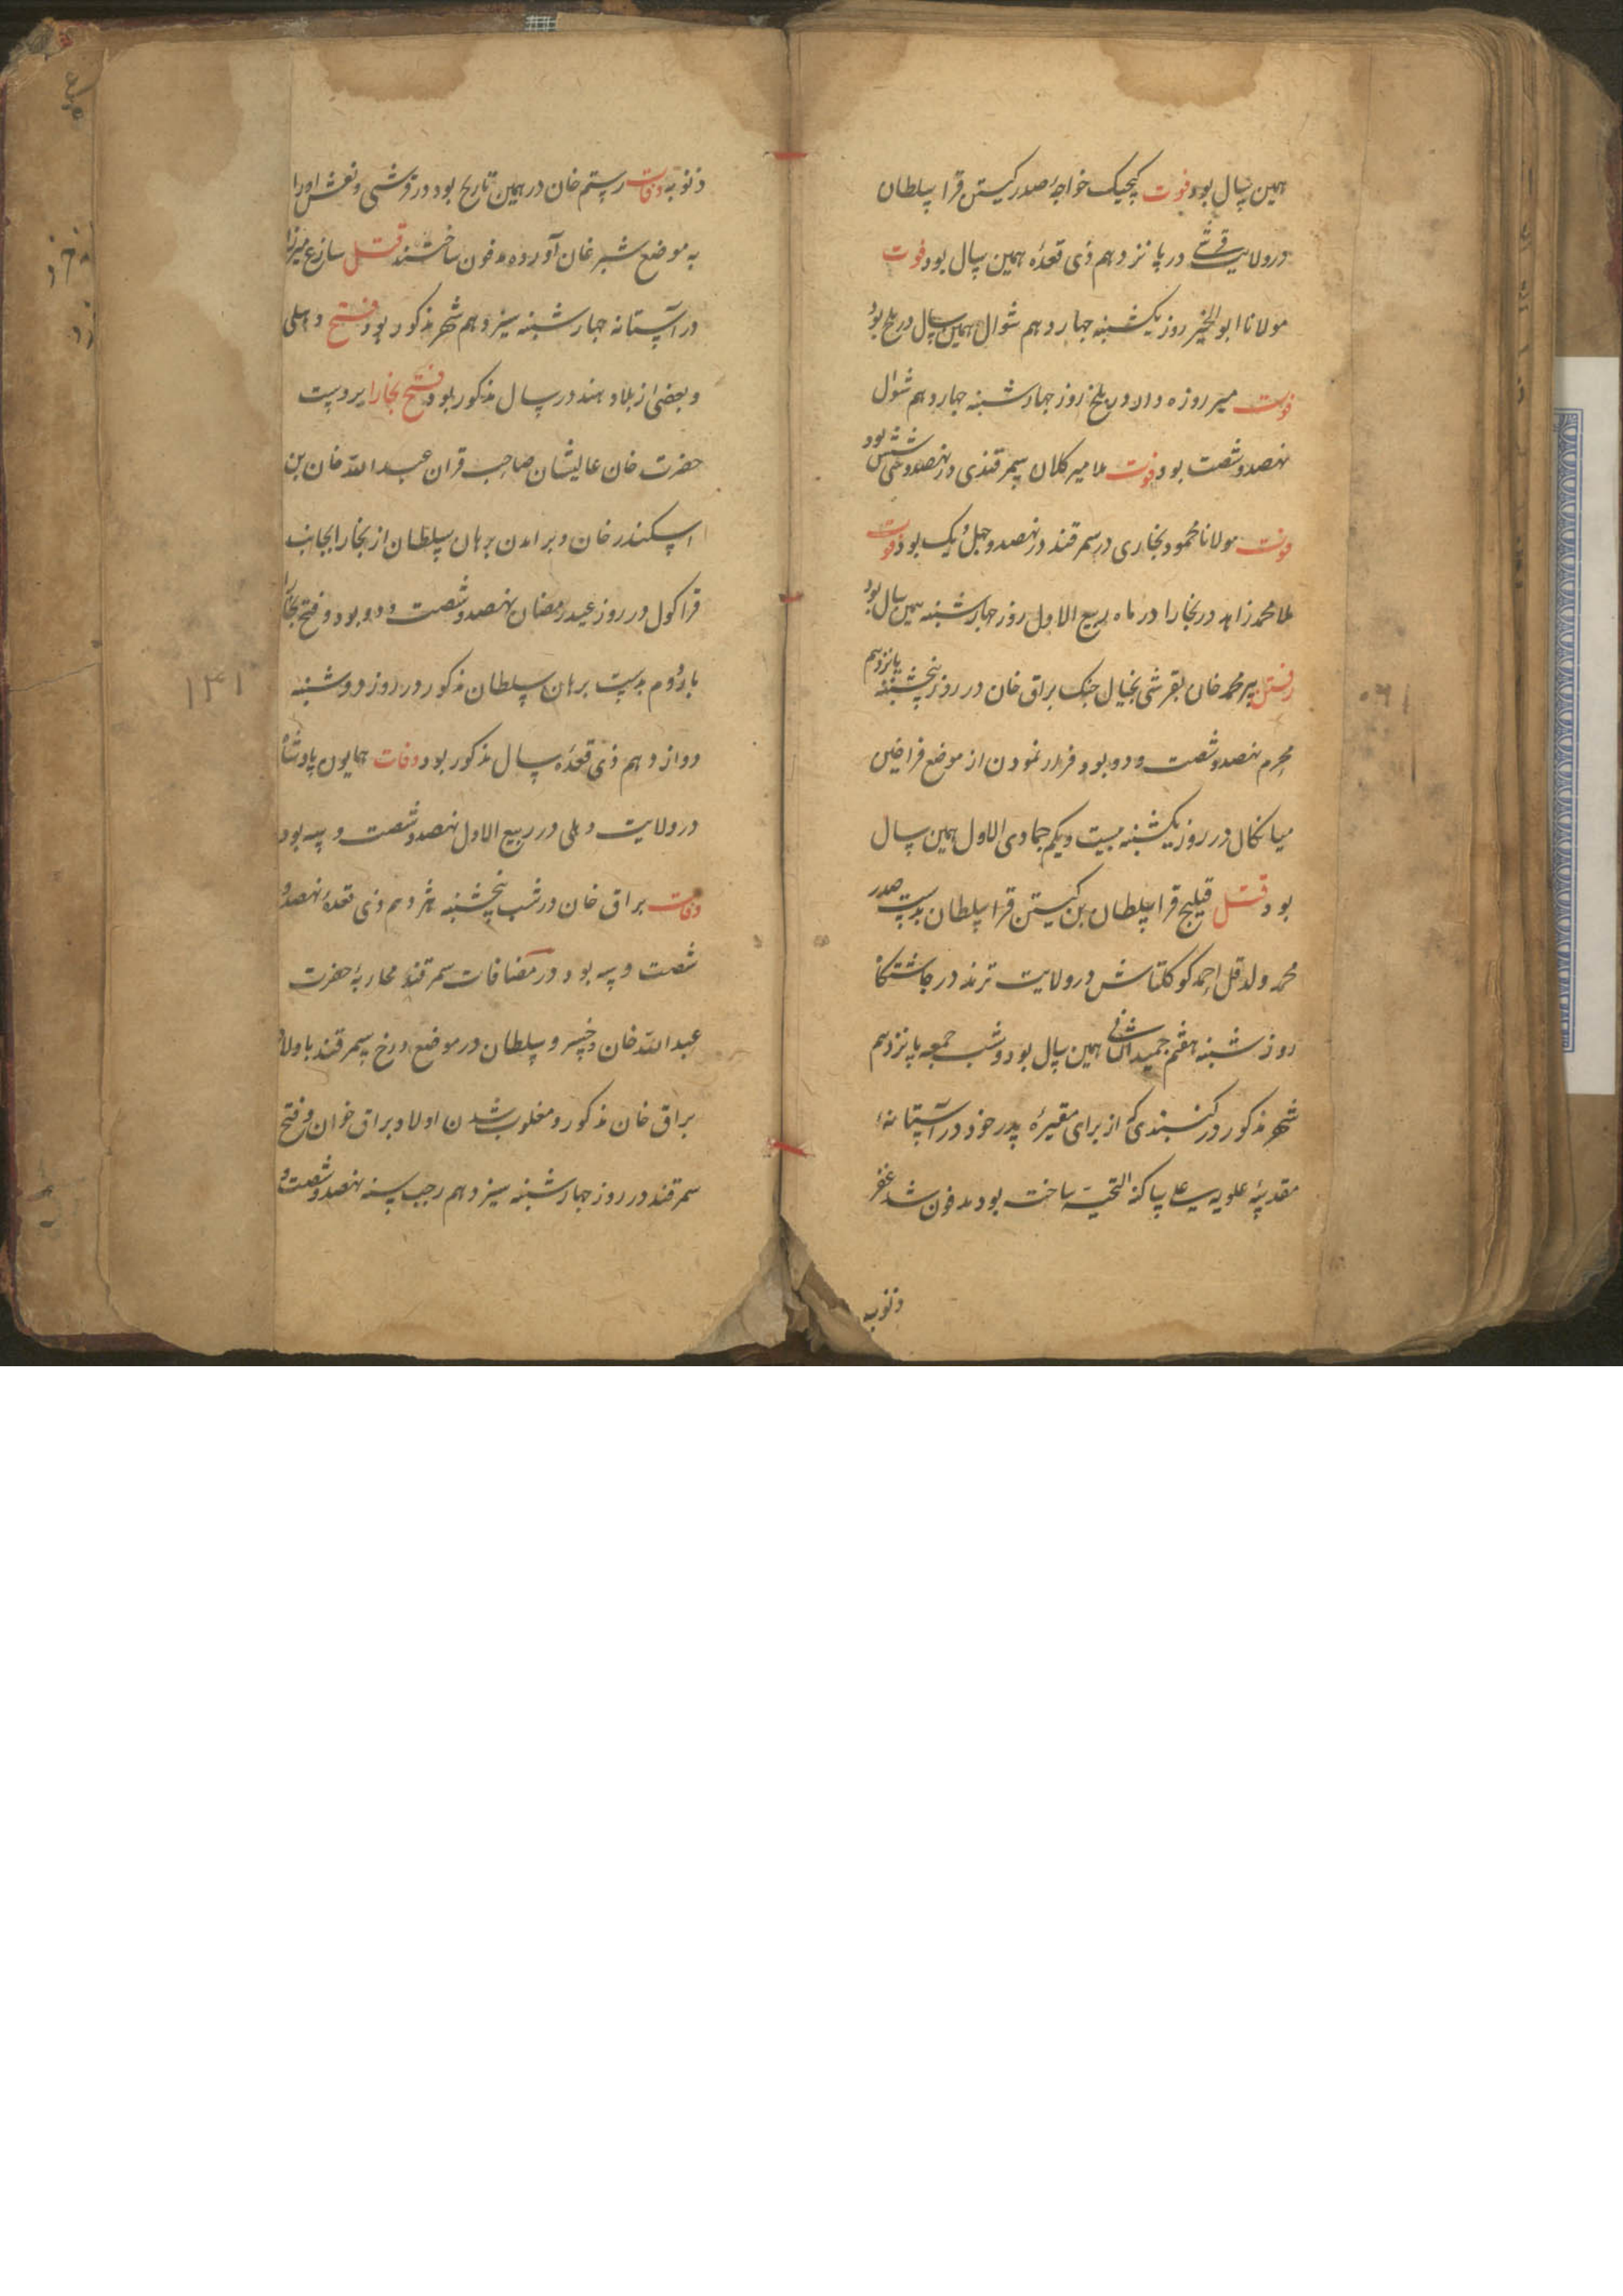 همین سال بود فوت کیچیک خواجه صدر کیستن قرا سلطان
در ولایت قرشی در پانزدهم ذی قعده همین سال بود فوت
مولانا ابو الخیر روز یکشنبه چهاردهم شوال همین سال در بلخ بود
فوت میر روزه دار در بلخ روز چهارشنبه چهاردهم شوال
نهصد و شصت بود فوت ملا میر کلان سمرقندی در نهصد و سی شش بود
فوت مولانا محمود بخاری در سمرقند در نهصد و چهل و یک بود فوت
ملا محمد زاهد در بخارا در ماه ربیع الاول روز چهارشنبه همین سال بود
رفتن پیر محمد خان بقرشی بخیال جنک براق خان در روز پنجشنبه پانزدهم
محرم نهصد و شصت و دو بود و فرار نمودن از موضع قراضین
میانکال در روز یکشنبه بیست و یکم جمادی الاول همین سال
بود قتل قیلیچ قرا سلطان بن کیستن قرا سلطان بدست صدر
محمد ولد قل احمد کوکلتاش در ولایت ترمذ در چاشتکاه
روز شنبه هفتم جمید الثانی همین سال بود و شب جمعه پانزدهم
شهر مذکور در کنبندی که از برای مقبرهٔ پدر خود در آستانهٔ
مقدسهٔ علویه علی ساکنه التحیة ساخته بود مدفون شد غفر
ذنوبه
ذنوبه وفات رستم خان در همین تاریخ بود در قرشی و نعش او را
به موضع شبرغان آورده مدفون ساختند قتل سازع میرزا
در آستانه چهارشنبه سیزدهم شهر مذکور بود فتح دهلی
و بعضی از بلاد هند در سال مذکور بود فتح بخارا بر دست
حضرت خان عالیشان صاحب قران عبد الله خان بن
اسکندر خان و بر امدن برهان سلطان از بخارا بجانب
قراکول در روز عید رمضان نهصد و شصت و دو بود و فتح بخارا
بار دوم بدست برهان سلطان مذکور در روز دوشنبه
دوازدهم ذی قعده سال مذکور بود وفات همایون پادشاه
در ولایت دهلی در ربیع الاول نهصد و شصت و سه بود
وفات براق خان در شب پنجشنبه هژدهم ذی قعدهٔ نهصد و
شصت و سه بود در مضافات سمرقند محاربهٔ حضرت
عبد الله خان و خسرو سلطان در موضع درخ سمرقند باولاد
براق خان مذکور و مغلوب شدن اولاد براق خوان و فتح
سمرقند در روز چهارشنبه سیزدهم رجب سنه نهصد و شصت و
۱۳۱